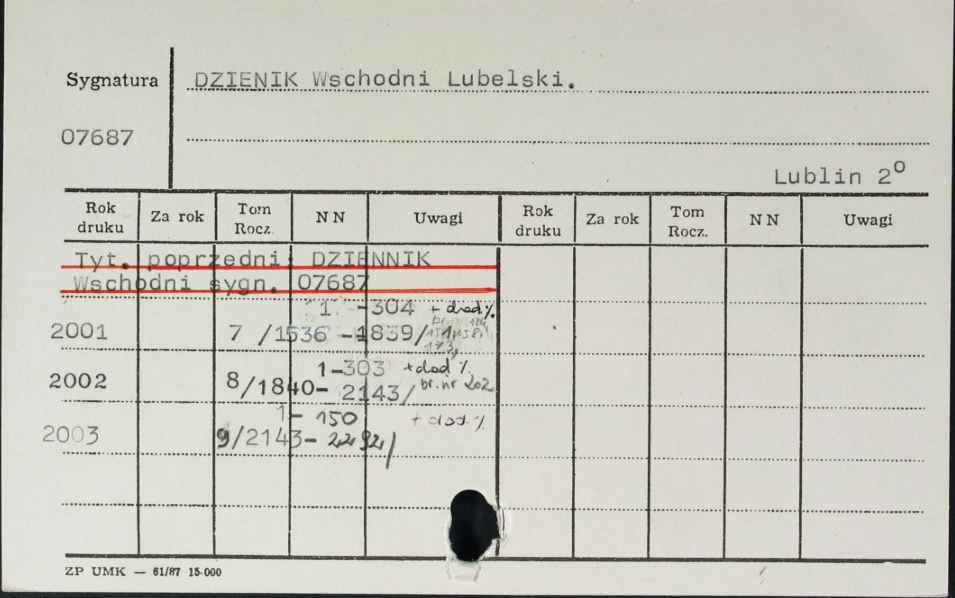 Sygnatura DZIENIK Wschodni Lubelski.
07687
Lublin 2º
Rok druku Za rok Tom Rocz. NN Uwagi Rok druku Za rok Tom Rocz. NN Uwagi
Tyt. poprzedni: DZIENNIK
Wschodni sygn. 07687
1 -304 + dod. %
2001 7 /1536 -1839/ br.
173,
1-303 +dod %
2002 8/1840- 2143/ br. nr 202
1- 150 + dod. %
2003 9/2143- 2292/
ZP UMK — 61/87 15-000